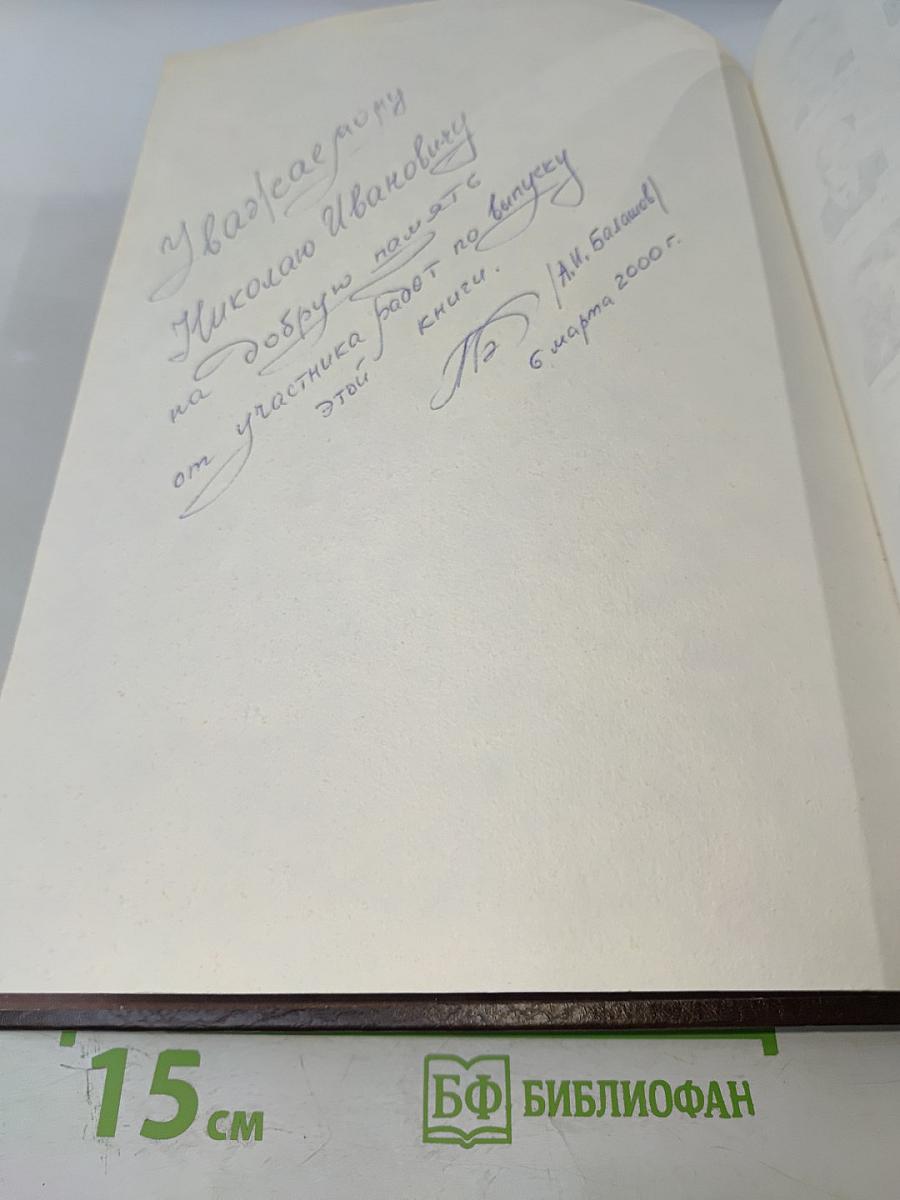 Уважаемому
Николаю Ивановичу
на добрую память
от участника работ по выпуску
этой книги.
/А.И. Балашов/
6 марта 2000 г.
15 см
БФ БИБЛИОФАН